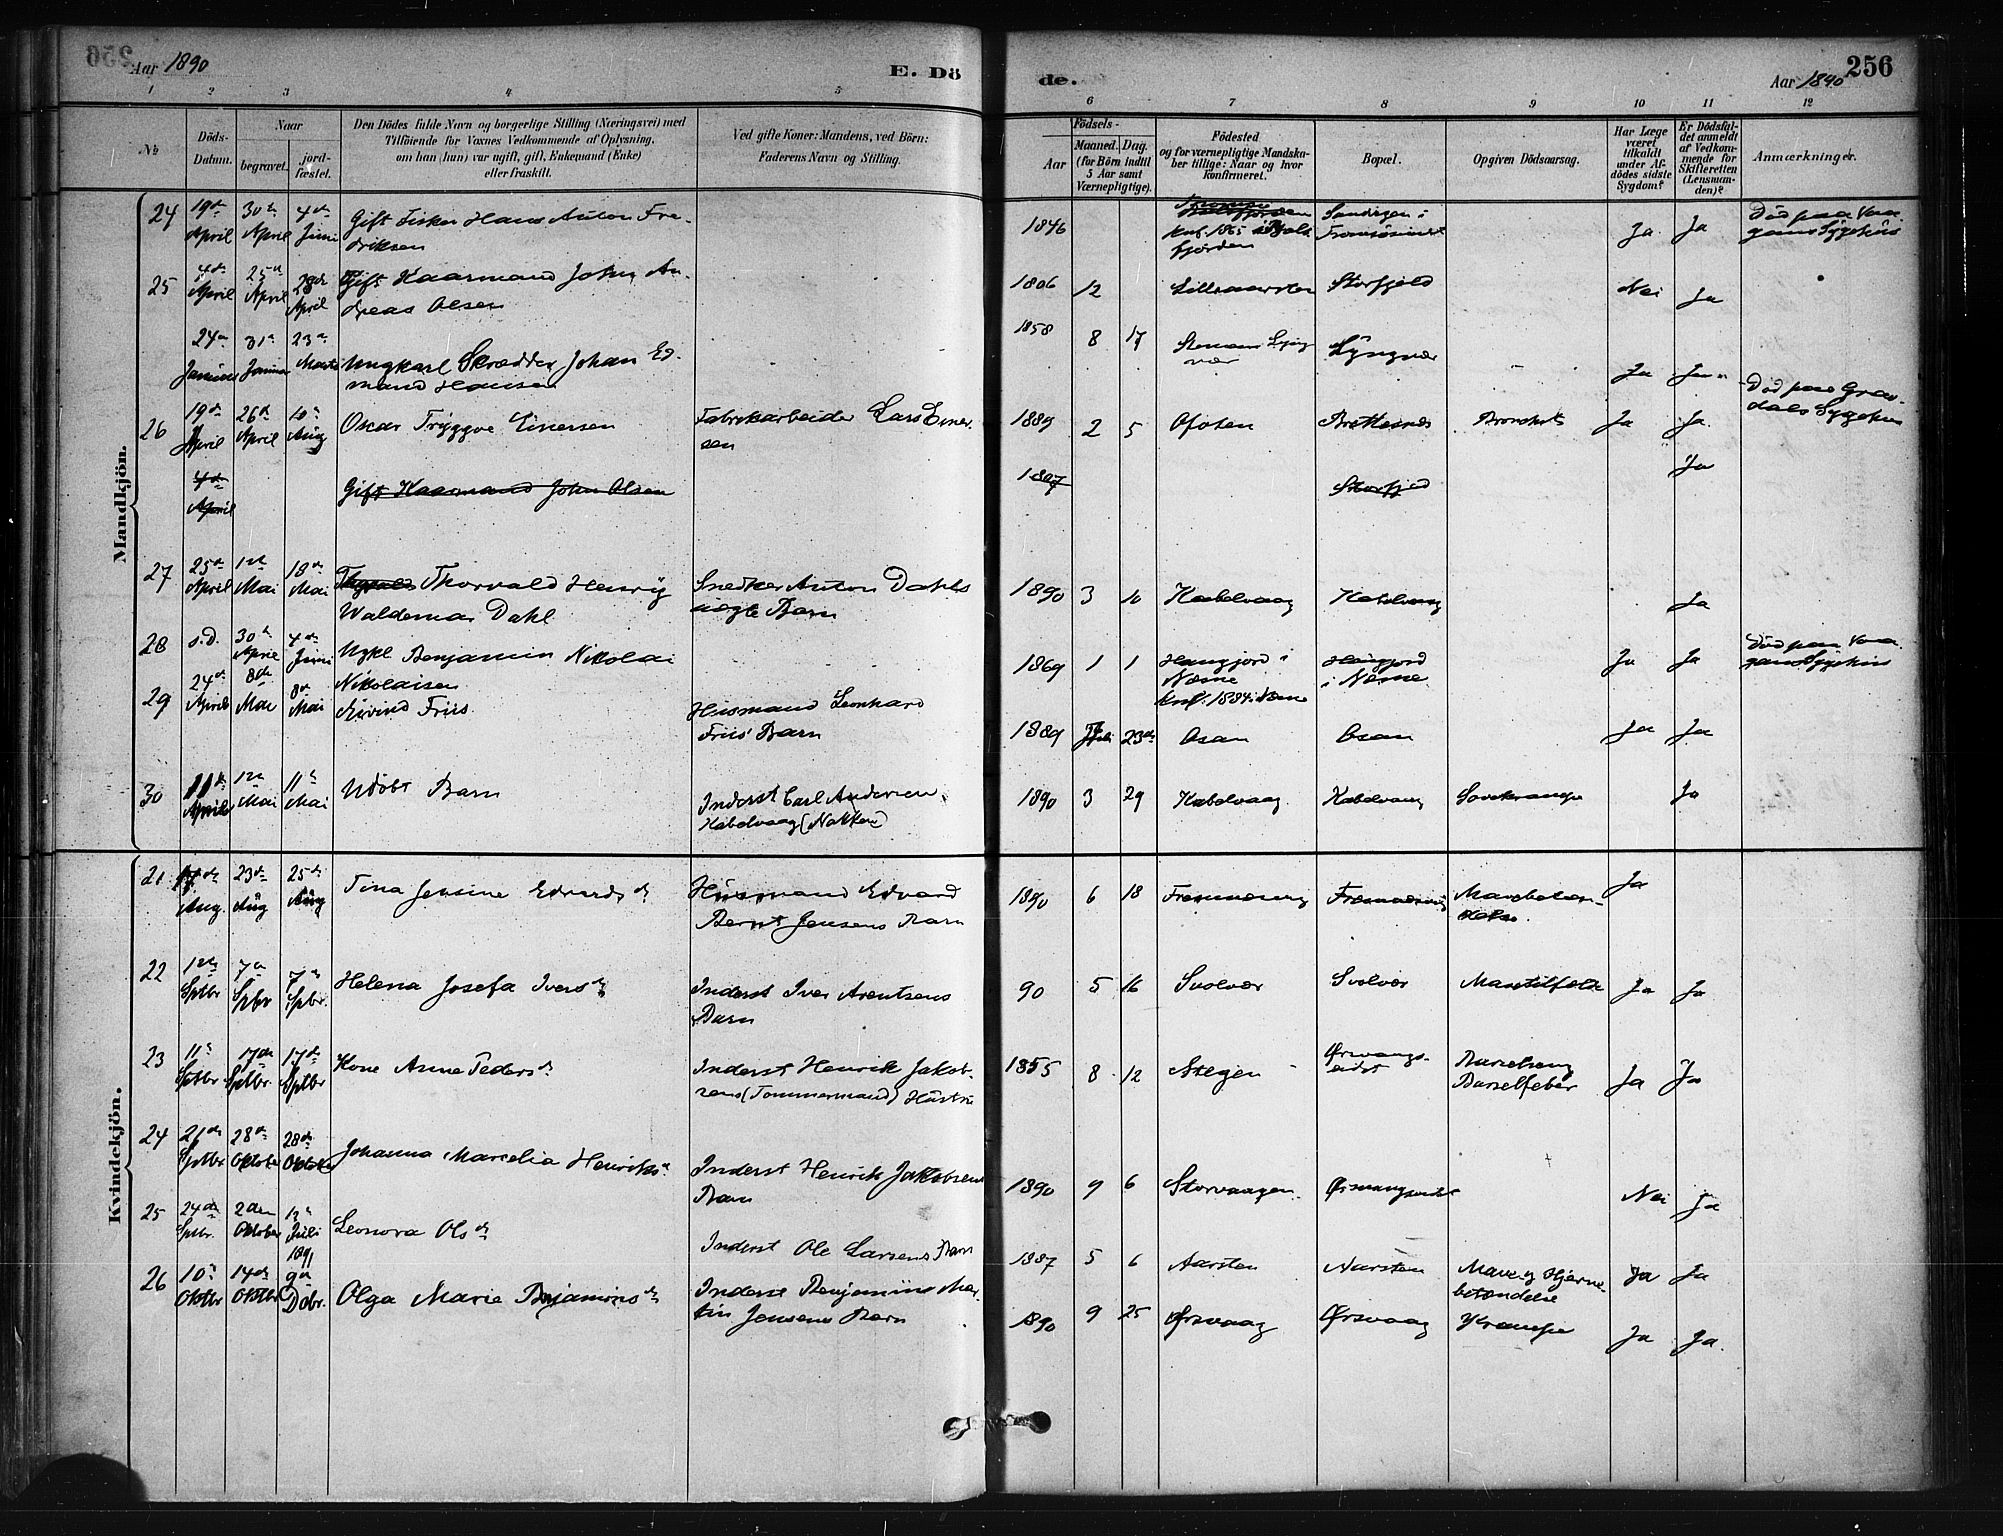 Aar 1890
E. Dö
1 2 3 4 5
№
Döds-
Datum.
Naar
begravet.
jord-
fæstet.
Den Dödes fulde Navn og borgerlige Stilling (Næringsvei) med
Tilföiende for Voxnes Vedkommende af Oplysning,
om han (hun) var ugift, gift, Enkemand (Enke)
eller fraskilt.
Ved gifte Koner: Mandens, ved Börn:
Faderens Navn og Stilling.
Mandkjön.
24 19de April 30te April 4de Juni Gift Fisker Hans Anton Fre-
driksen
25 4de April 25de April 28de April Gift Kaarmand John An-
dreas Olsen
24de Januar 31te Januar 23de Marts Ungkarl Skrædder Johan Ed-
mand Hansen
26 19de April 26de April 10de Aug Oskar Tryggve Einersen Fabrikarbeider Lars Einer-
sen
4de April Gift Kaarmand John Olsen
27 25de April 1ste Mai 18de Mai Thorvald Henrig Snedker Anton Dahls
Waldemar Dahl ægte Barn
28 s.D. 30te April 4de Juni Ugkl Benjamin Nikolai
Nikolaisen
29 24de April 8de Mai 8de Mai Eivind Friis Husmand Leonhard
Friis' Barn
30 11te April 1ste Mai 11te Mai Udöbt Barn Inderst Carl Andersen
Kabelvaag (Nakken)
Kvindekjön.
21 17de Aug. 23de Aug 25de Aug Tina Jensine Edvardsdr Husmand Edvard
Bernt Jensens Barn
22 1ste Sptbr 7de Spbr 7de Spbr. Helena Josefa Iversdr Inderst Iver Arentsens
Barn
23 11te Sptbr 17de Sptbr. 17de Sptbr Kone Anne Pedersdr Inderst Henrik Jakob-
sens (Tømmermand) Hustru
24 21de Sptbr 28de Oktober 28de Oktober Johanna Marselia Henriksdr Inderst Henrik Jakobsens
Barn
25 24de Sptbr. 2den Oktober 12te Juli 1891 Leonora Olsdr Inderst Ole Larsens Barn
26 10de Oktbr 14de Oktbr 9de Dcbr. Olga Marie Benjaminsdr Inderst Benjamins Mar-
tin Jensens Barn
de.
Aar 1890
256
6 7 8 9 10 11 12
Födsels-
Aar
Maaned. Dag.
(for Börn indtil
5 Aar samt
Værnepligtige).
Födested
og for værnepligtige Mandska-
ber tillige: Naar og hvor
konfirmeret.
Bopæl.
Opgiven Dödsaarsag.
Har Læge
været
tilkaldt
under Af-
dödes sidste
Sygdom?
Er Dödsfal-
det anmeldt
af Vedkom-
mende for
Skifteretten
(Lensman-
den)?
Anmærkninger.
1846 Knf. 1865 i Bals- fjorden Tromsøsundet Ja Ja Död paa Vaa-
gans Sygehus
1806 12 Storfjeld Nei Ja
1858 8 17 Lyngvær Ja Ja Död paa Grav-
dals Sygehus
1889 2 5 Ofoten Brettesnes Bronchit Ja Ja
1807 Storfjeld Ja
1890 3 10 Kabelvaag Kabelvaag Ja
1869 1 1 Haugjord i Næsne Knf. 1884 i Haugjord i Næsne Ja Ja Död paa Vaa-
gans Sygehus
1889 Juli 23de Osan Osan Ja Ja
1890 3 29 Kabelvaag Kabelvaag Ja
1890 6 18 Ja
90 5 16 Svolvær Svolvær Ja Ja
1855 8 12 Stegen Ørsvaags-
eidet Barselseng
Barselfeber Ja Ja
1890 9 6 Storvaagen Ørsvaagseidet Nei Ja
1887 5 6 Aarsten Aarsten Mave og Hjerne-
betændelse Ja Ja
1890 9 25 Ørsvaag Ørsvaag Krampe Ja Ja.